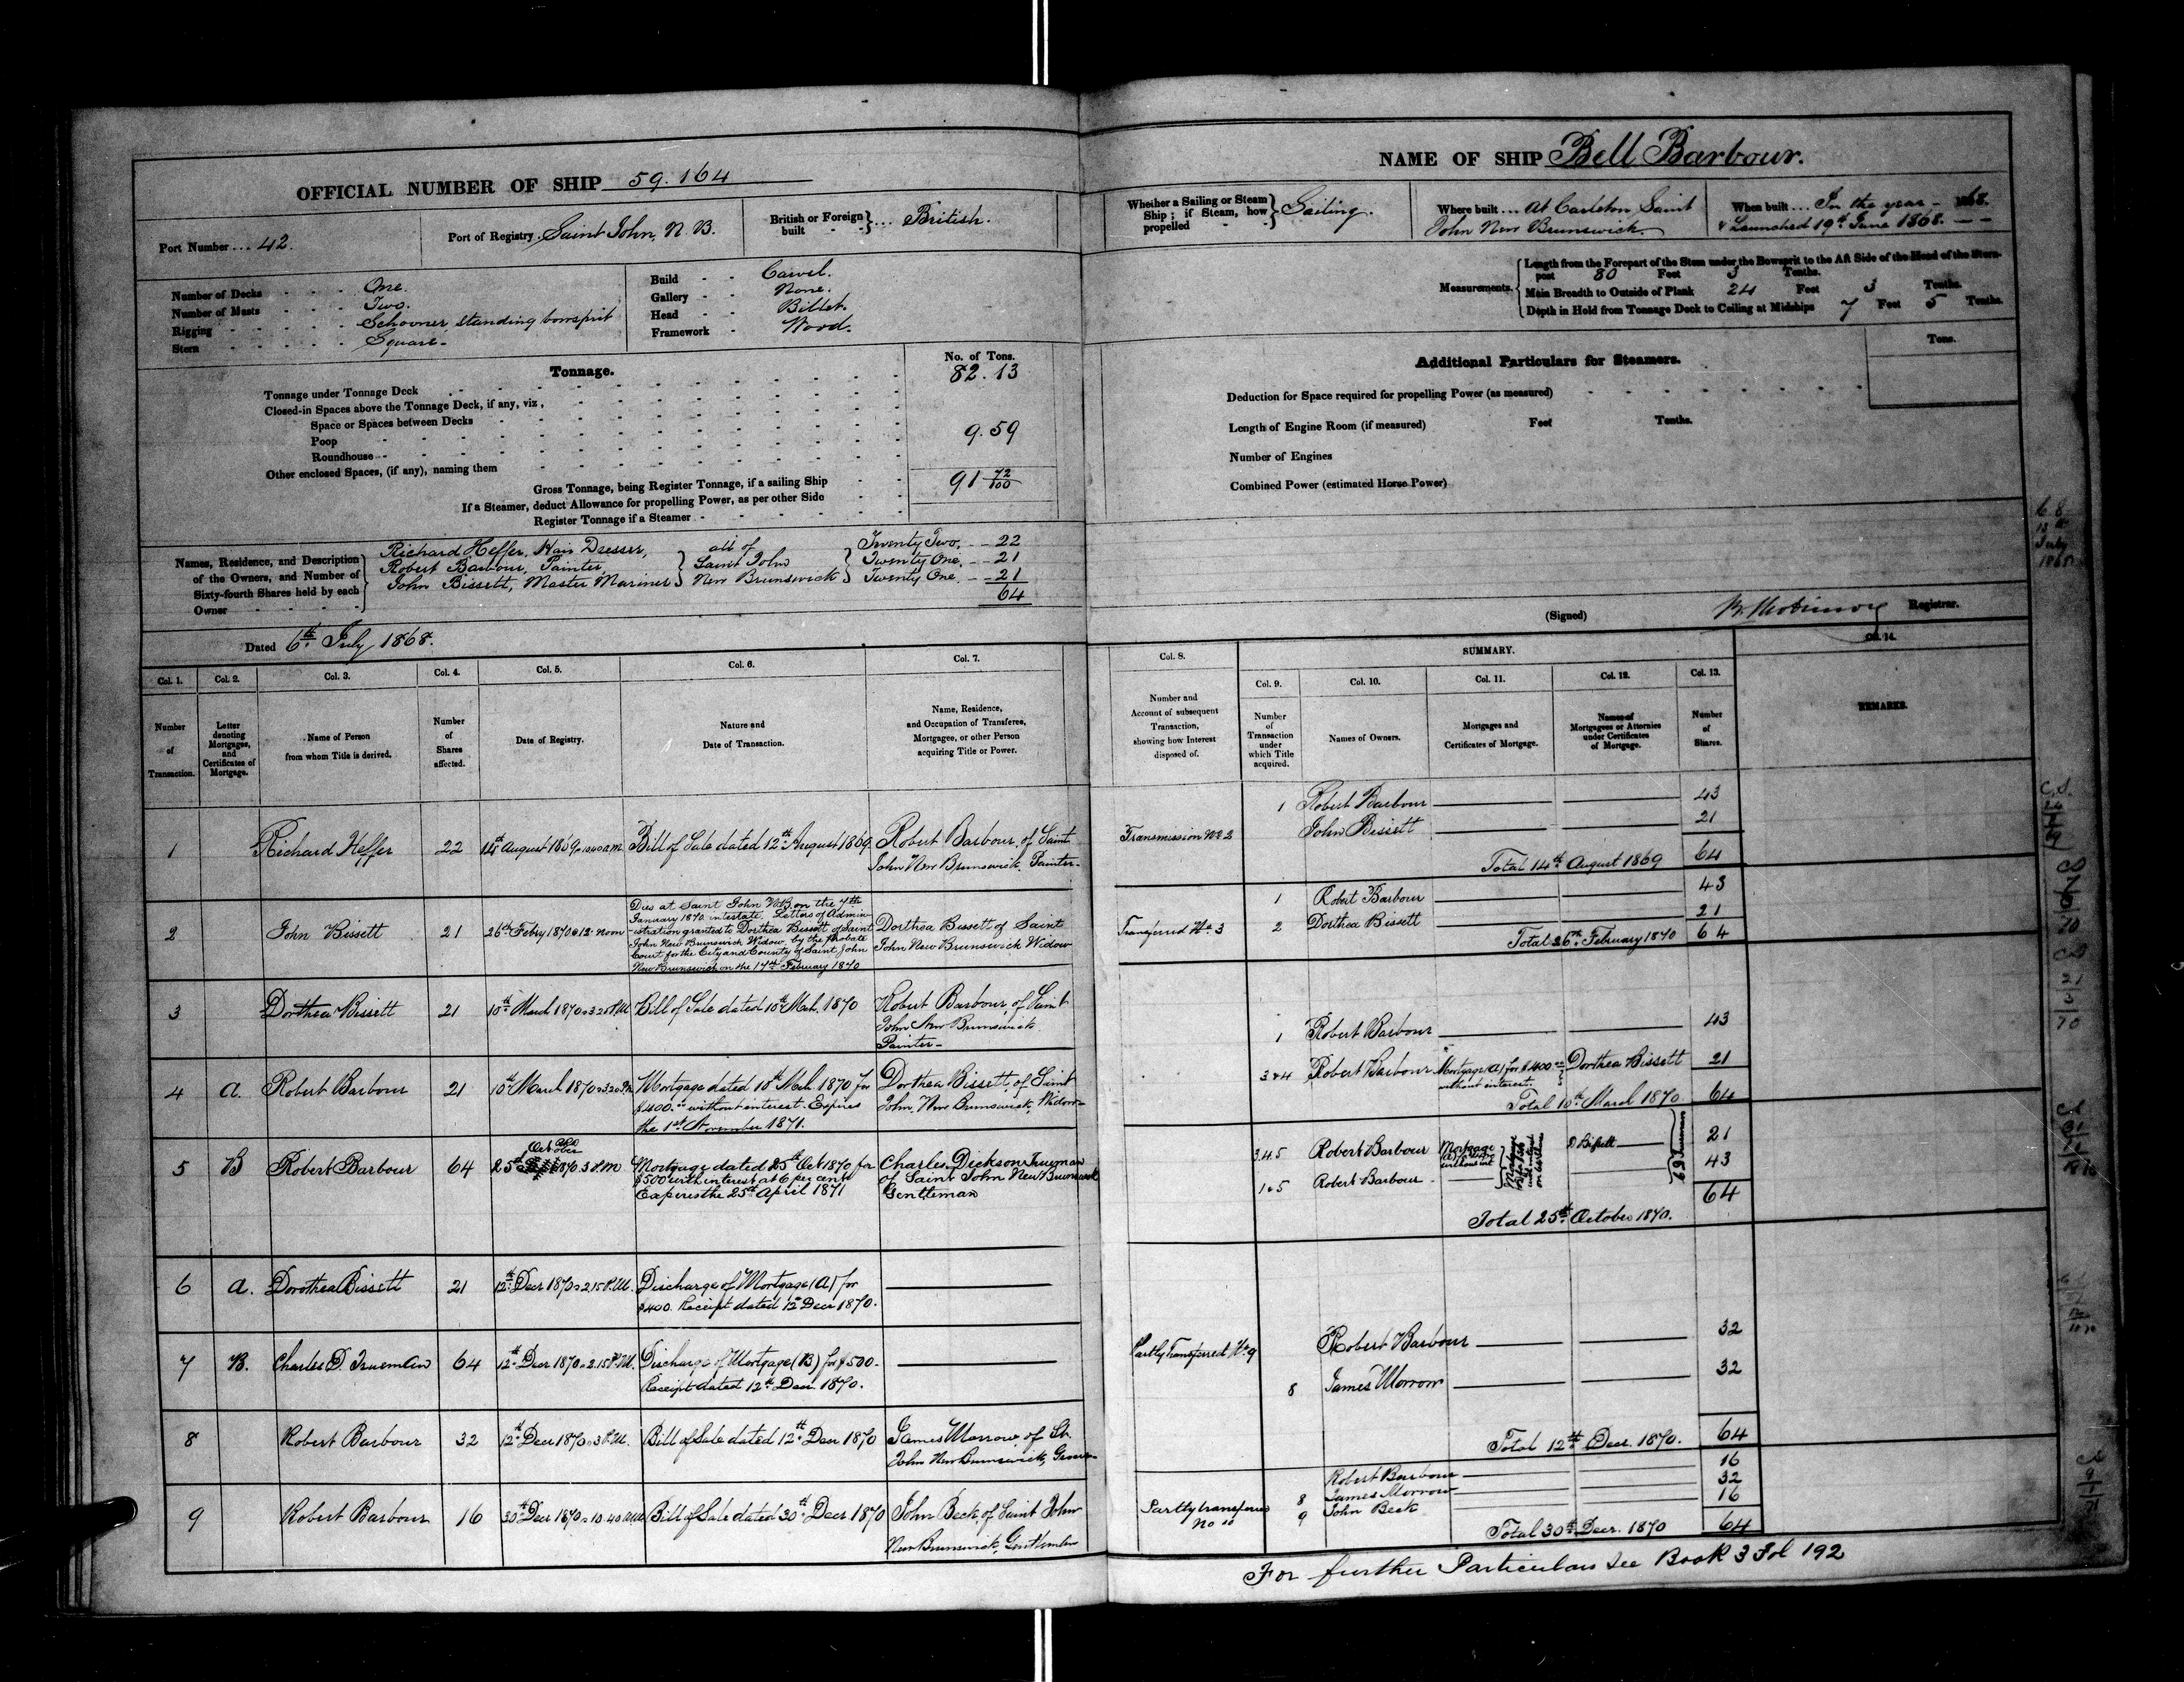 OFFICIAL NUMBER OF SHIP 59.164
Port Number ... 42.
Port of Registry Saint John, N. B.
British or Foreign built } ... British.
Number of Decks - - - One.
Number of Masts - - - Two.
Rigging - - - Schooner standing bowsprit
Stern - - - Square.
Build - - Carvel.
Gallery - - None.
Head - - Billet.
Framework - Wood.
Tonnage.
No. of Tons.
Tonnage under Tonnage Deck 82.13
Closed-in Spaces above the Tonnage Deck, if any, viz,
Space or Spaces between Decks
Poop 9.59
Roundhouse
Other enclosed Spaces, (if any), naming them
Gross Tonnage, being Register Tonnage, if a sailing Ship 91 72/100
If a Steamer, deduct Allowance for propelling Power, as per other Side
Register Tonnage if a Steamer
Names, Residence, and Description of the Owners, and Number of Sixty-fourth Shares held by each Owner
Richard Heffer, Hair Dresser, } all of { Twenty Two, -- 22
Robert Barbour, Painter, } Saint John { Twenty One, -- 21
John Bissett, Master Mariner } New Brunswick { Twenty One. -- 21
64
Dated 6th July 1868.
NAME OF SHIP Bell Barbour.
Whether a Sailing or Steam Ship; if Steam, how propelled } Sailing.
Where built ... At Carleton Saint
John New Brunswick.
When built ... In the year - 1868.
& Launched 19th June 1868. --
Measurements.
Length from the Forepart of the Stem under the Bowsprit to the Aft Side of the Head of the Stern-
post 80 Feet 3 Tenths.
Main Breadth to Outside of Plank 24 Feet 3 Tenths.
Depth in Hold from Tonnage Deck to Ceiling at Midships 7 Feet 5 Tenths.
Additional Particulars for Steamers.
Tons.
Deduction for Space required for propelling Power (as measured)
Length of Engine Room (if measured) Feet Tenths.
Number of Engines
Combined Power (estimated Horse Power)
(Signed) Registrar.
Col. 1. Col. 2. Col. 3. Col. 4. Col. 5. Col. 6. Col. 7.
Number of Transaction.
Letter denoting Mortgages, and Certificates of Mortgage.
Name of Person from whom Title is derived.
Number of Shares affected.
Date of Registry.
Nature and Date of Transaction.
Name, Residence, and Occupation of Transferee, Mortgagee, or other Person acquiring Title or Power.
1 Richard Heffer 22 14th August 1869 Bill of Sale dated 12th August 1869 Robert Barbour, of Saint
John New Brunswick Painter-
2 John Bissett 21 26th Febry 1870 @ 12 noon
Dies at Saint John N.B. on the 7th
January 1870 intestate. Letters of Admin-
-istration granted to Dorthea Bissett of Saint
John New Brunswick Widow by the Probate
Court for the City and County of Saint John
New Brunswick on the 17th February 1870
Dorthea Bissett of Saint
John New Brunswick Widow
3 Dorthea Bissett 21 10th March 1870 Bill of Sale dated 10th Mch. 1870 Robert Barbour, of Saint
John New Brunswick
Painter-
4 A. Robert Barbour 21 10th March 1870 Mortgage dated 10th Mch. 1870 for
$400.00 without interest. Expires
the 1st November 1871.
Dorthea Bissett, of Saint
John, New Brunswick, Widow-
5 B Robert Barbour 64 25th October 1870 3 P.M Mortgage dated 25th Oct 1870 for
$500 with interest at 6 per cent
Expires the 25th April 1871
Charles Dickson Trueman
of Saint John New Brunswick
Gentleman
6 A. Dorothea Bissett 21 12th Decr 1870 2.15 P.M. Discharge of Mortgage (A) for
$400. Receipt dated 12 Decr 1870.
7 B. Charles D. Trueman 64 12th Decr 1870 2.15 P.M. Discharge of Mortgage (B) for $500-
Receipt dated 12th Decr 1870.
8 Robert Barbour 32 12th Decr 1870 3 P.M. Bill of Sale dated 12th Decr 1870 James Morrow, of St.
John New Brunswick,
9 Robert Barbour 16 30th Decr 1870 10.40 Bill of Sale dated 30th Decr 1870 John Beck, of Saint John
New Brunswick, Gentleman
SUMMARY.
Col. 8. Col. 9. Col. 10. Col. 11. Col. 12. Col. 13. Col. 14.
Number and Account of subsequent Transaction, showing how Interest disposed of.
Number of Transaction under which Title acquired.
Names of Owners.
Mortgages and Certificates of Mortgage.
Names of Mortgagees or Attornies under Certificates of Mortgage.
Number of Shares.
REMARKS.
1 Robert Barbour 43
Transmission No 2 John Bissett 21
Total 14th August 1869 64
1 Robert Barbour 43
Transferred No 3 2 Dorthea Bissett 21
Total 26th February 1870 64
1 Robert Barbour 43
3&4 Robert Barbour Mortgage (A) for $400.00 without interest. } Dorthea Bissett 21
Total 10th March 1870. 64
3.4.5 Robert Barbour Mortgage D Bissett 21
1&5 Robert Barbour C D Trueman 43
64
Total 25th October 1870.
Partly Transferred No 9 Robert Barbour 32
8 James Morrow 32
Total 12th Decr. 1870. 64
Robert Barbour 16
8 James Morrow 32
Partly transferred No 10 9 John Beck 16
Total 30th Decr. 1870 64
For further Particulars see Book 3 Fol 192